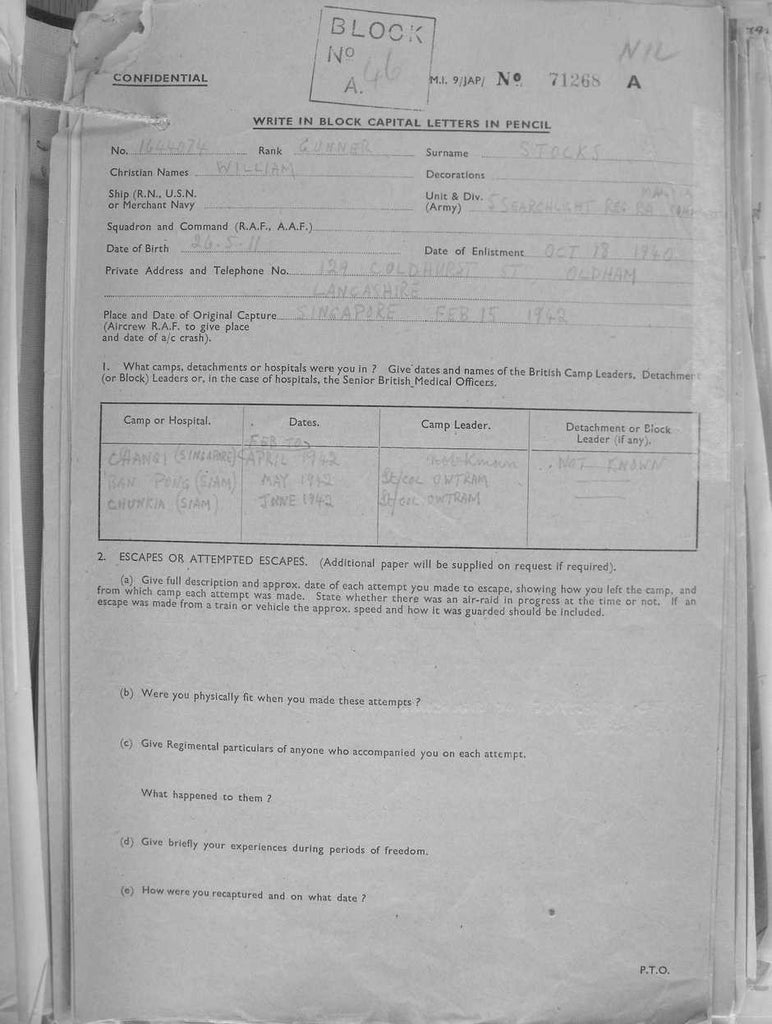 BLOCK
Nº
A. 46
NIL
CONFIDENTIAL
M.I. 9/JAP/ Nº 71268 A
WRITE IN BLOCK CAPITAL LETTERS IN PENCIL
No. 1644074 Rank GUNNER Surname STOCKS
Christian Names WILLIAM Decorations
Ship (R.N., U.S.N. or Merchant Navy
Unit & Div. (Army) 5 SEARCHLIGHT REG RA
Squadron and Command (R.A.F., A.A.F.)
Date of Birth 26.5.11 Date of Enlistment OCT 18 1940
Private Address and Telephone No. 129 COLDHURST ST OLDHAM
LANCASHIRE
Place and Date of Original Capture SINGAPORE FEB 15 1942
(Aircrew R.A.F. to give place
and date of a/c crash).
1. What camps, detachments or hospitals were you in ? Give dates and names of the British Camp Leaders, Detachment
(or Block) Leaders or, in the case of hospitals, the Senior British Medical Officers.
Camp or Hospital. Dates. Camp Leader. Detachment or Block Leader (if any).
FEB TO
CHANGI (SINGAPORE) APRIL 1942 NOT KNOWN
BAN PONG (SIAM) MAY 1942 Lt/COL OWTRAM
CHUNKIA (SIAM) JUNE 1942 Lt/COL OWTRAM
2. ESCAPES OR ATTEMPTED ESCAPES. (Additional paper will be supplied on request if required).
(a) Give full description and approx. date of each attempt you made to escape, showing how you left the camp, and
from which camp each attempt was made. State whether there was an air-raid in progress at the time or not. If an
escape was made from a train or vehicle the approx. speed and how it was guarded should be included.
(b) Were you physically fit when you made these attempts ?
(c) Give Regimental particulars of anyone who accompanied you on each attempt.
What happened to them ?
(d) Give briefly your experiences during periods of freedom.
(e) How were you recaptured and on what date ?
P.T.O.